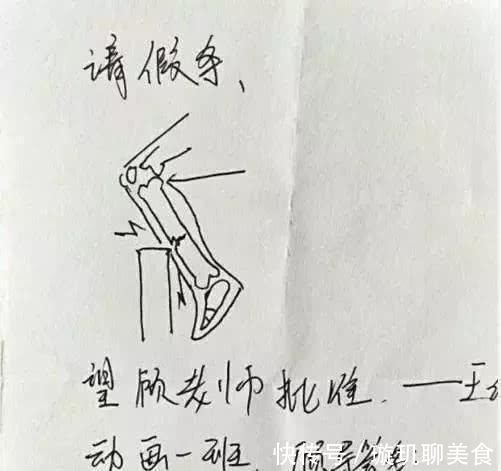 请假条、
望顾老师批准.——王
动画一班
快传号/游玑聊美食